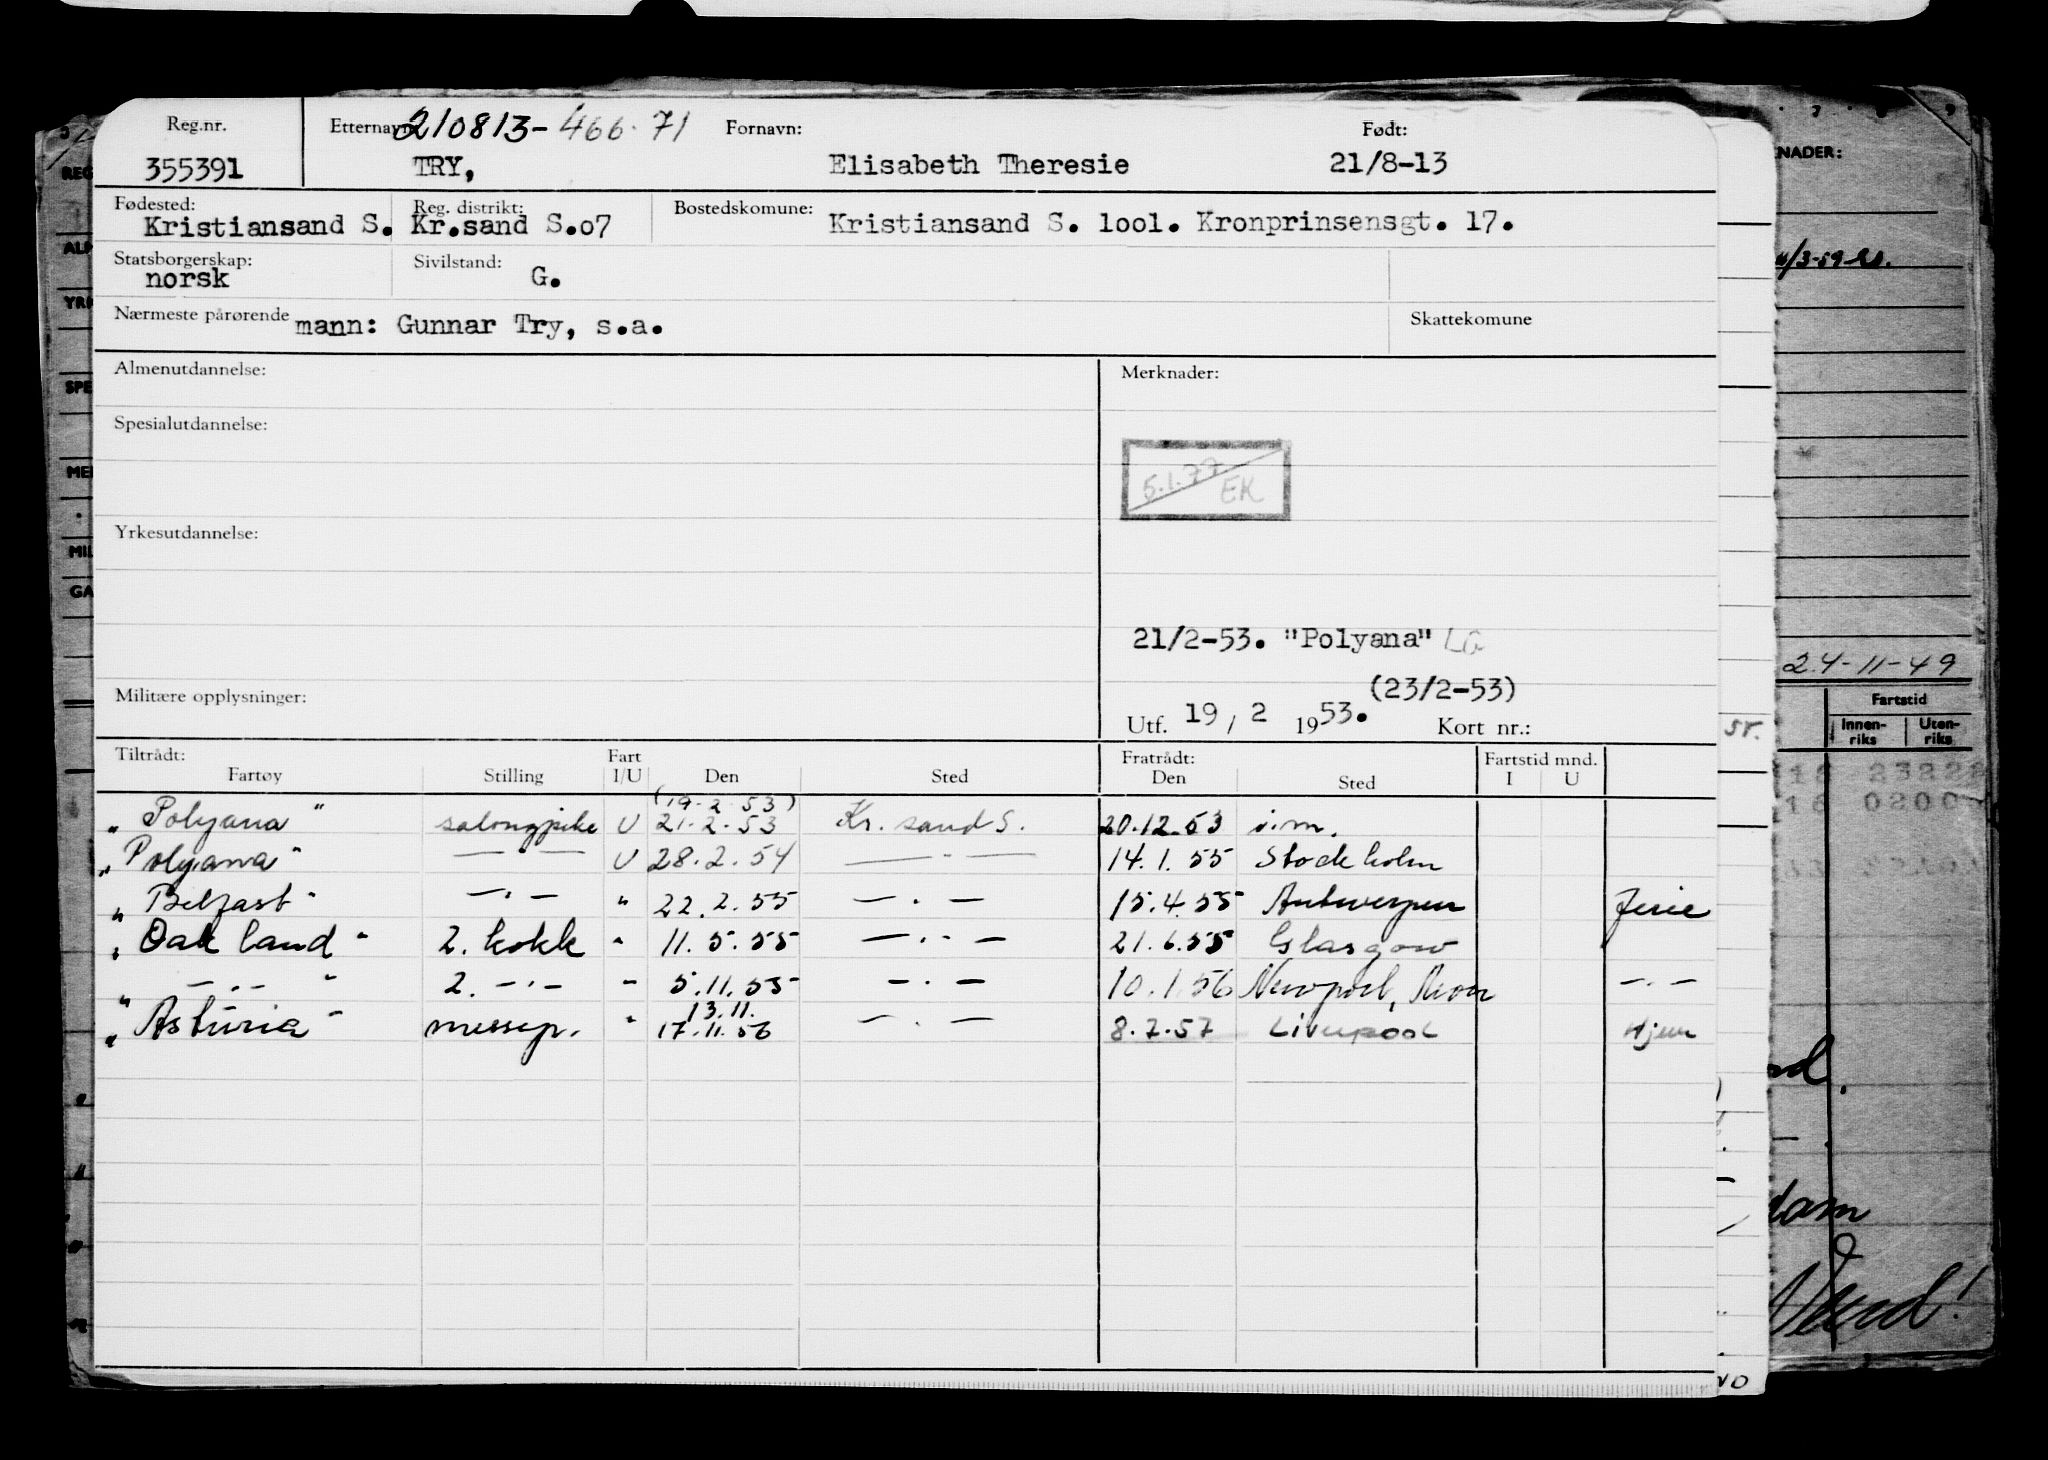 Reg.nr. Etternavn 210813-466.71 Fornavn: Født:
355391 TRY, Elisabeth Theresie 21/8-13
Fødested: Reg. distrikt: Bostedskomune:
Kristiansand S. Kr.sand S.o7 Kristiansand S. 1001. Kronprinsensgt. 17.
Statsborgerskap: Sivilstand:
norsk G.
Nærmeste pårørende mann: Gunnar Try, s.a. Skattekomune
Almenutdannelse: Merknader:
Spesialutdannelse:
5.1.77 EK
Yrkesutdannelse:
21/2-53. "Polyana" LG
(23/2-53)
Militære opplysninger: Utf. 19 / 2 1953. Kort nr.:
Tiltrådt: Fart Fratrådt: Fartstid mnd.
Fartøy Stilling I/U Den Sted Den Sted I U
(19.2.53)
"Polyana" salongpike U 21.2.53 Kr. sand S. 20.12.53 v.m.
"Polyana" — · — U 28.2.54 — · — 14.1.55 Stockholm
"Belfast" — · — " 22.2.55 — · — 15.4.55 Antwerpen ferie
"Oakland" 2. kokk " 11.5.55 — · — 21.6.55 Glasgow
" — · — " 2. — · — " 5.11.55 — · — 10.1.56 Newport, Mon — · —
13.11.
"Asturia" messep. " 17.11.56 — · — 8.7.57 Liverpool Hjem
NADER:
24-11-49
Fartstid
Innen-riks Uten-riks